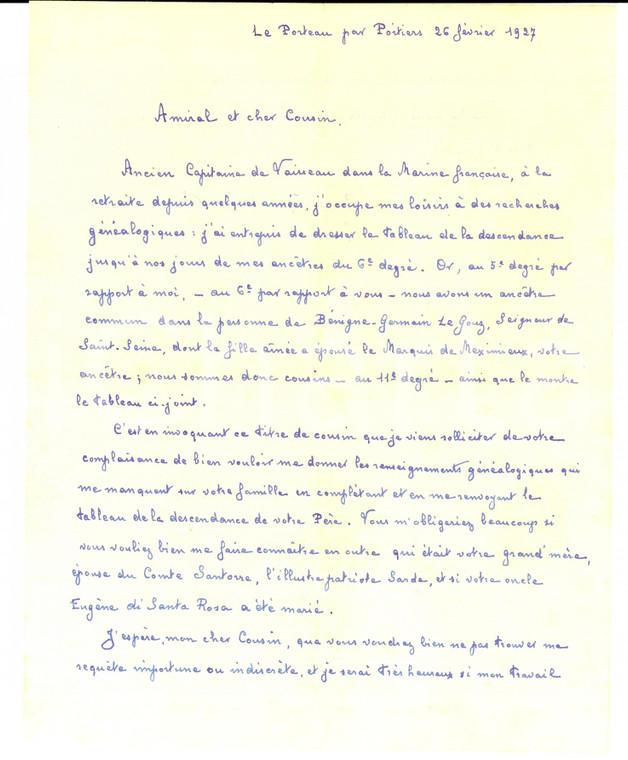 Le Porteau par Poitiers 26 février 1927
Amiral et cher Cousin.
Ancien Capitaine de Vaisseau dans la Marine française, à la
retraite depuis quelques années, j'occupe mes loisirs à des recherches
généalogiques : j'ai entrepris de dresser le tableau de la descendance
jusqu'à nos jours de mes ancêtres du 6e degré. Or, au 5e degré par
rapport à moi, – au 6e par rapport à vous – nous avons un ancêtre
commun dans la personne de Bénigne-Germain Le Gouz, Seigneur de
Saint-Seine, dont la fille aînée a épousé le Marquis de Meximieux, votre
ancêtre ; nous sommes donc cousins – au 11e degré – ainsi que le montre
le tableau ci-joint.
C'est en invoquant ce titre de cousin que je viens solliciter de votre
complaisance de bien vouloir me donner les renseignements généalogiques qui
me manquent sur votre famille en complétant et en me renvoyant le
tableau de la descendance de votre Père. Vous m'obligeriez beaucoup si
vous vouliez bien me faire connaître en outre qui était votre grand'mère,
épouse du Comte Santorre, l'illustre patriote Sarde, et si votre oncle
Eugène di Santa Rosa a été marié.
J'espère, mon cher Cousin, que vous voudrez bien ne pas trouver ma
requête importune ou indiscrète, et je serai très heureux si mon travail